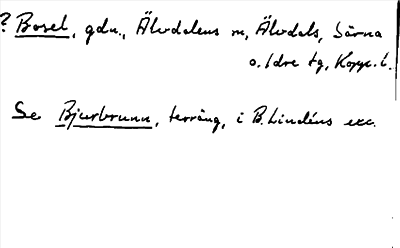 ? Bosel, gdn., Älvdalens m, Älvdals, Särna
o. Idre tg, Kopp. l.
Se Bjurbrunn, terräng, i B. Lindéns exc.